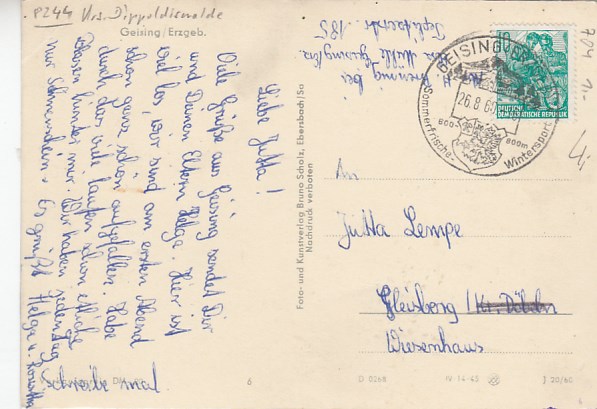 P244 Krs. Dippoldiswalde
Geising/Erzgeb.
Liebe Jutta!
Viele Grüße aus Geising sendet Dir
und Deinen Eltern Helga. Hier ist
viel los, wir sind am ersten Abend
schon ganz schön aufgefallen. Habe
durch das viel laufen schon etliche
Blasen hinter mir. Wir haben jeden Tag
nur Sonnenschein. Es grüßt Helga u.
schreibe mal
6
Foto- und Kunstverlag Bruno Scholz, Ebersbach/Sa
Nachdruck verboten
H. Henning bei
Mühle Geising/Erz
Teplitzerstr. 185
GEISING
26.8.60
600-
800m
Sommerfrische - Wintersport
10
DEUTSCHE
DEMOKRATISCHE REPUBLIK
704 1,-
An
Jutta Lempe
Gleisberg /Kr. Döbeln
Wiesenhaus
D 0268
IV-14-45
J 20/60